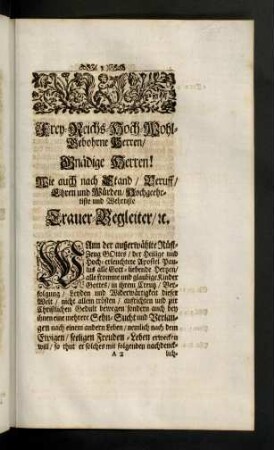 Frey-Reichs-Hoch-Wohl-
Gebohrne Herren/
Gnädige Herren!
Wie auch nach Stand/ Beruff/
Ehren und Würden/ Hochgeehr-
tiste und Wehrtiste
Trauer Begleiter/ ꝛc.
WAnn der außerwählte Rüst-
Zeug GOttes/ der Heilige und
Hoch-erleuchtete Apostel Pau-
lus alle Gott-liebende Hertzen/
alle fromme und glaubige Kinder
Gottes/ in ihrem Creutz/ Ver-
folgung/ Leyden und Widerwärtigkeit dieser
Welt/ nicht allein trösten/ aufrichten und zur
Christlichen Gedult bewegen sondern auch bey
ihnen eine mehrere Sehn-Sucht und Verlan-
gen nach einem andern Leben/ nemlich nach dem
Ewigen/ seeligen Freuden-Leben erwecken
will/ so thut er solches mit folgenden nachdenck-
A 2 lich-